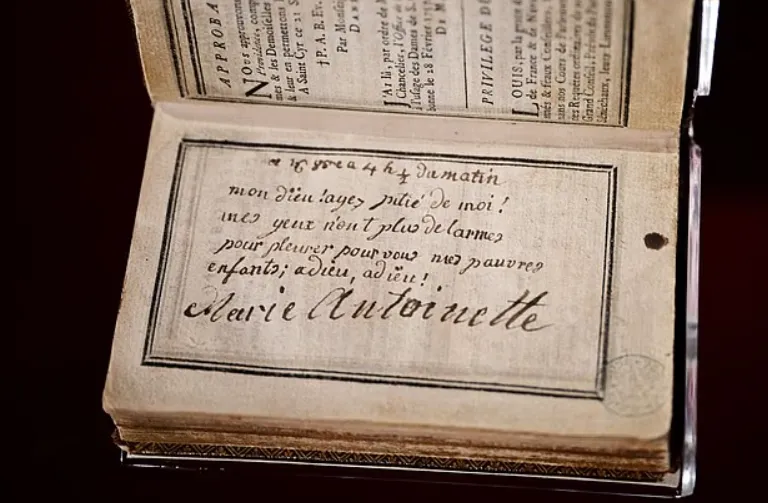 APPROBA
NOus approuvons
Providence, comp
mes & les Demoiselles
& leur en permettons
A Saint Cyr ce 21 S
† P. A. B. Ev.
Par Monsei
J'AI lû, par ordre de M
Chancelier, l'Office d
l'usage des Dames de S.
bonne le 28 Février
DE M
PRIVILEGE DU
LOUIS, par la
de France & de Nava
més & féaux Conseillers,
nans nos Cours de Parlemen
des Requêtes ordinaires de
Grand Conseil, Prévôt de Par
Sénéchaux, leurs Lieutenans
ce 16 8bre a 4 h ½ du matin
mon dieu ! ayez pitié de moi !
mes yeux n'ont plus de larmes
pour pleurer pour vous mes pauvres
enfants ; adieu, adieu !
Marie Antoinette